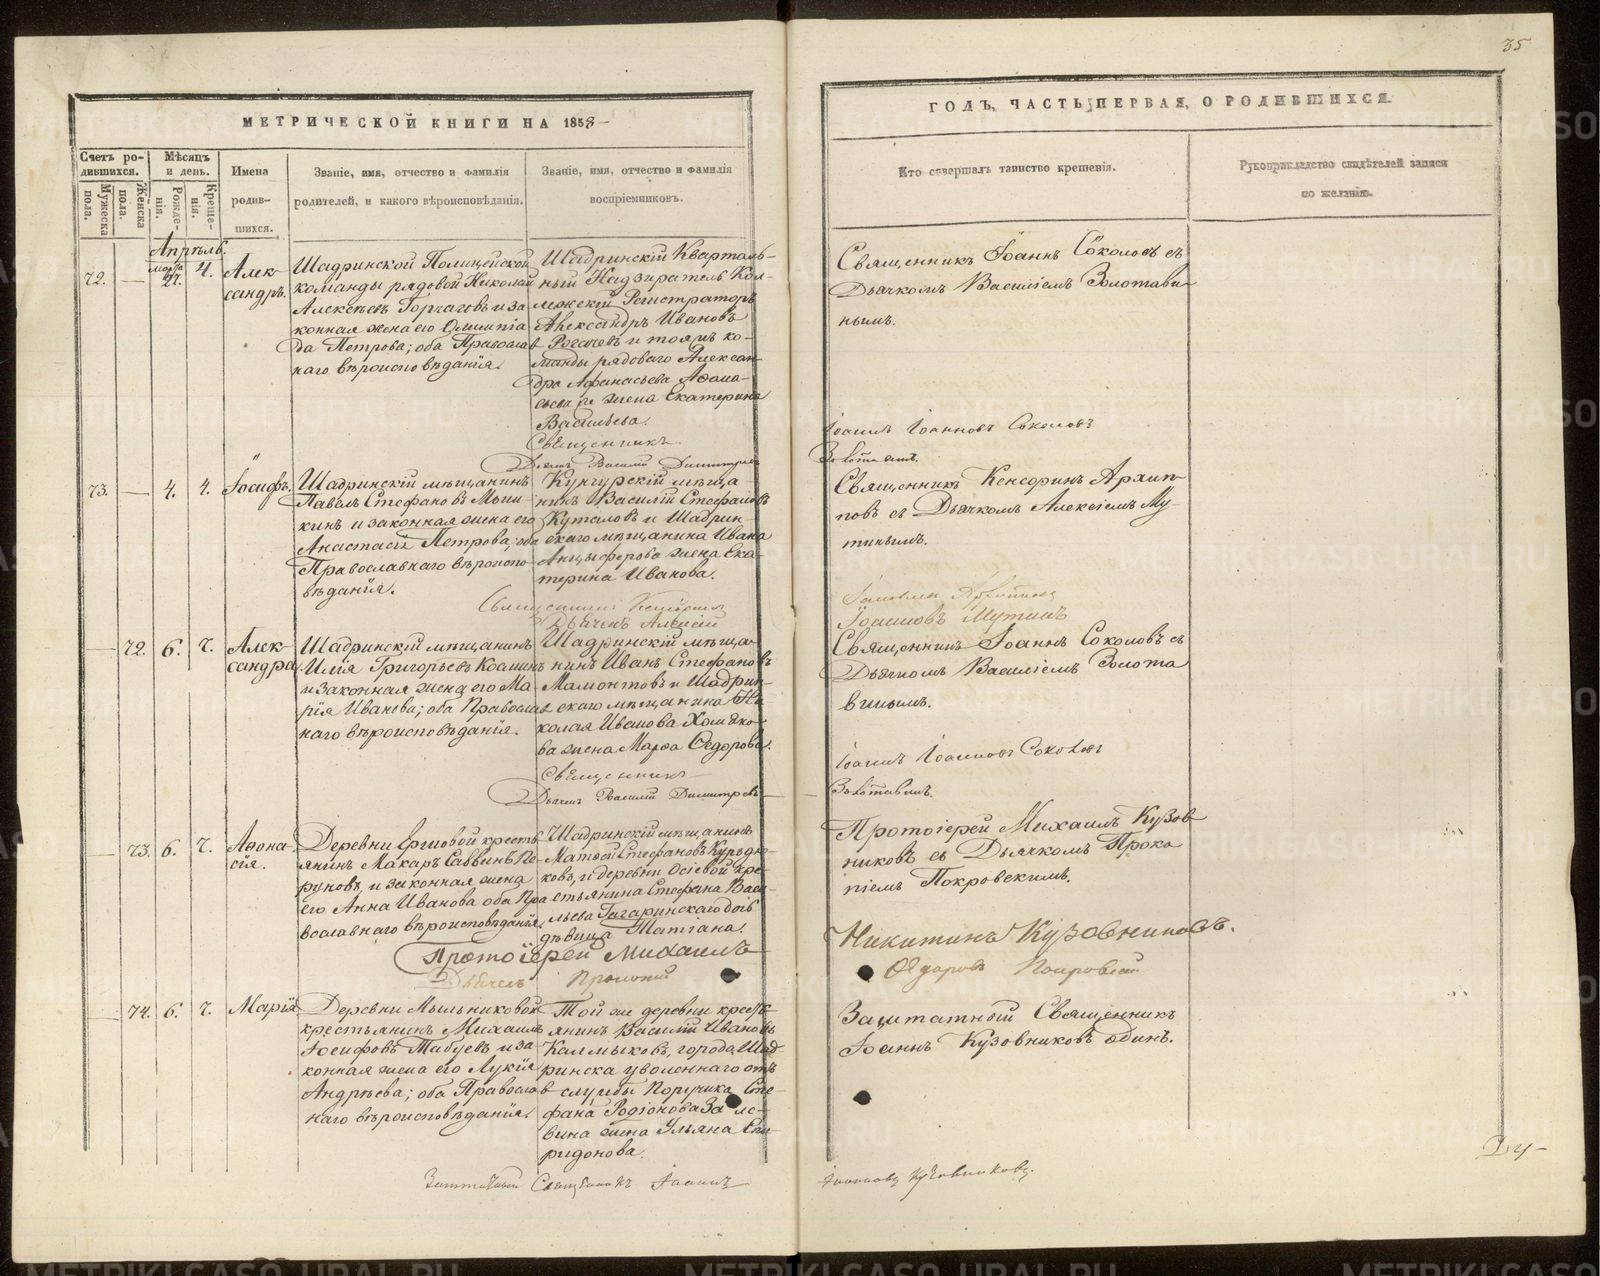 35
МЕТРИЧЕСКОЙ КНИГИ НА 1858
ГОДЪ, ЧАСТЬ ПЕРВАЯ, О РОДИВШИХСЯ.
Счетъ ро-
дившихся.
Мужеска
пола.
Женска
пола.
Мѣсяцъ
и день.
Рожде-
нія.
Креще-
нія.
Имена
родив-
шихся.
Званіе, имя, отчество и фамилія
родителей, и какого вѣроисповѣданія.
Званіе, имя, отчество и фамилія
воспріемниковъ.
Кто совершалъ таинство крещенія.
Рукоприкладство свидѣтелей записи
по желанію.
Апрѣль.
72. — Марта 27. 4.
Алек-
сандръ.
Шадринской Полицейской
команды рядовой Николай
Алексѣевъ Горчаговъ и за-
конная жена его Олимпіа-
да Петрова; оба Православ-
наго вѣроисповѣданія.
Шадринскій Кварталь-
ный Надзиратель Кол-
лежскій Регистраторъ
Александръ Ивановъ
Рогачевъ и тояжъ ко-
манды рядоваго Алексан-
дра Афанасьева
жена Екатерина
Васильева.
Священникъ Іоаннъ Соколовъ съ
Дьячкомъ Василіемъ Золотави-
нымъ.
Священникъ
Іоаннъ Іоанновъ Соколовъ
Дьячекъ Василій Димитріевъ
73. — 4. 4.
Іосифъ.
Шадринскій мѣщанинъ
Павелъ Стефановъ Мыш-
кинъ и законная жена его
Анастасія Петрова; оба
Православнаго вѣроиспо-
вѣданія.
Кунгурскій мѣща-
нинъ Василій Стефановъ
Куталовъ и Шадрин-
скаго мѣщанина Ивана
Анцыферова жена Ека-
терина Иванова.
Священникъ Кенсоринъ Архип-
повъ съ Дьячкомъ Алексіемъ Му-
тинымъ.
Священникъ Кенсоринъ
Дьячекъ Алексій
Іоанновъ Мутинъ
— 72. 6. 7.
Алек-
сандра
Шадринскій мѣщанинъ
Илія Григорьевъ
и законная жена его Ма-
рія Иванова; оба Православ-
наго вѣроисповѣданія.
Шадринскій мѣща-
нинъ Иванъ Стефановъ
Мамонтовъ и Шадрин-
скаго мѣщанина Ни-
колая Иванова Хомяко-
ва жена Марѳа Ѳедорова.
Священникъ Іоаннъ Соколовъ съ
Дьячкомъ Василіемъ Золота
винымъ.
Священникъ
Іоаннъ Іоанновъ Соколовъ
Дьячекъ Василій Димитріевъ
Золотавинъ.
— 73. 6. 7.
Аѳона-
сія.
Деревни Ершовой кресть-
янинъ Макаръ Саввинъ Пе-
руновъ, и законная жена
его Анна Иванова оба Пра-
вославнаго вѣроисповѣданія.
Шадринскій мѣщанинъ
Матѳей Стефановъ Курьдю-
ковъ, и деревни Осіевой кре-
стьянина Стефана Васи-
льева Гагаринскаго дочь
дѣвица Татіана.
Протоіерей Михаилъ Кузов-
никовъ съ Дьячкомъ Проко-
піемъ Покровскимъ.
Протоіерей Михаилъ
Никитинъ Кузовниковъ.
Дьячекъ Прокопій
Ѳедоровъ Покровскій
— 74. 6. 7.
Марія
Деревни Мыльниковой
крестьянинъ Михаилъ
Іосифовъ Табуевъ и за-
конная жена его Лукія
Андреева; оба Православ-
наго вѣроисповѣданія.
Той же деревни кресть-
янинъ Василій Ивановъ
Калмыковъ, города Шад-
ринска уволеннаго отъ
службы Поручика Сте-
фана Родіонова
жена Ульяна Спи-
ридонова.
Заштатный Священникъ
Іоаннъ Кузовниковъ одинъ.
Заштатный Священникъ Іоаннъ
Іоанновъ Кузовниковъ.
METRIKI.GASO-URAL.RU